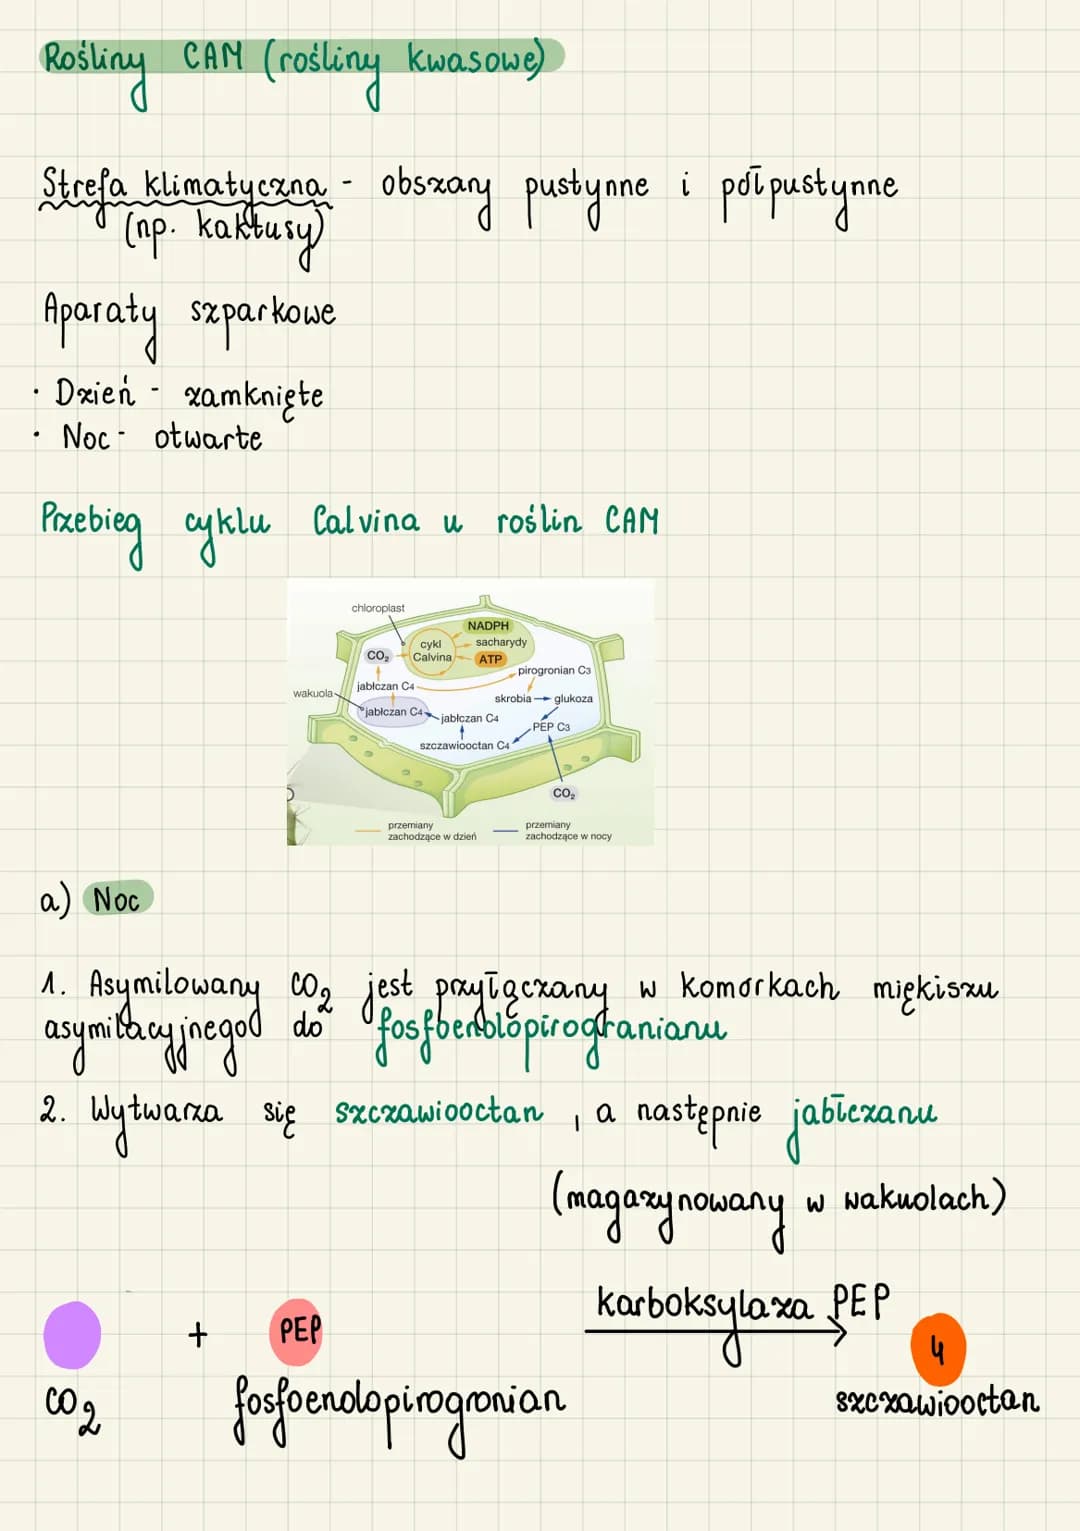 Rośliny CAM (rośliny kwasowe)
Strefa klimatyczna - obszary pustynne i półpustynne
(np. kaktusy)
Aparaty szparkowe
· Dzień - zamknięte
· Noc - otwarte
Przebieg cyklu Calvina u roślin CAM
chloroplast
NADPH
cykl Calvina
sacharydy
CO₂
ATP
pirogronian C3
jabłczan C4
wakuola
skrobia
glukoza
jabłczan C4
jabłczan C4
PEP C3
szczawiooctan C4
CO₂
przemiany
zachodzące w dzień
przemiany
zachodzące w nocy
a) Noc
1. Asymilowany CO₂ jest przyłączany w komórkach miękiszu
asymilacyjnego do fosfoenolopirogranianu
2. Wytwarza się szczawiooctan, a następnie jabłczanu
(magazynowany w wakuolach)
karboksylaza PEP
+ PEP
4
CO₂ fosfoenolopirogronian szczawiooctan